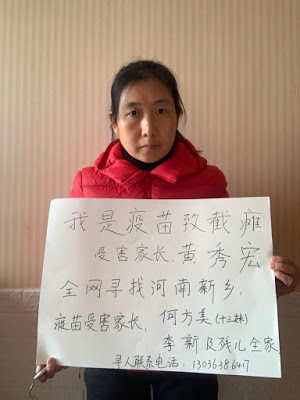 我是疫苗致截瘫
受害家长、黄秀宏
全网寻找河南新乡,
疫苗受害家长、何方美(十三妹)
李新及残儿全家
寻人联系电话: